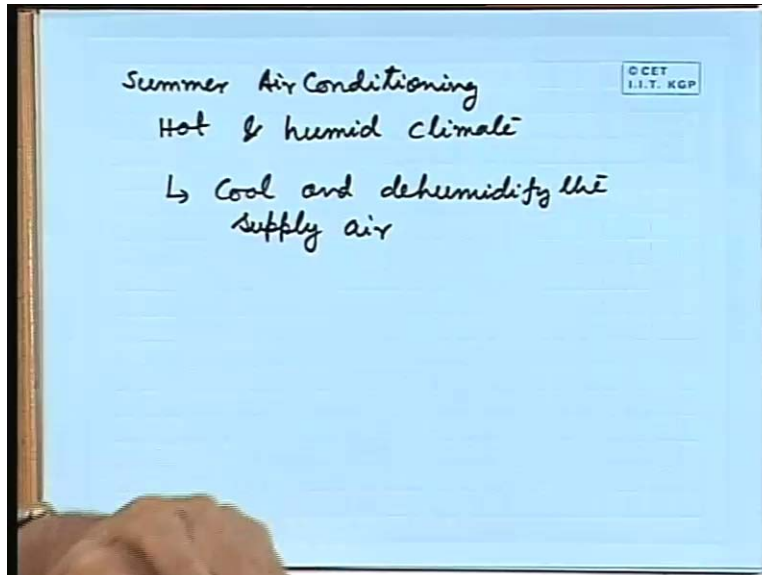 Summer Air Conditioning
© CET
I.I.T. KGP
Hot & humid climate
↳ Cool and dehumidify the
supply air